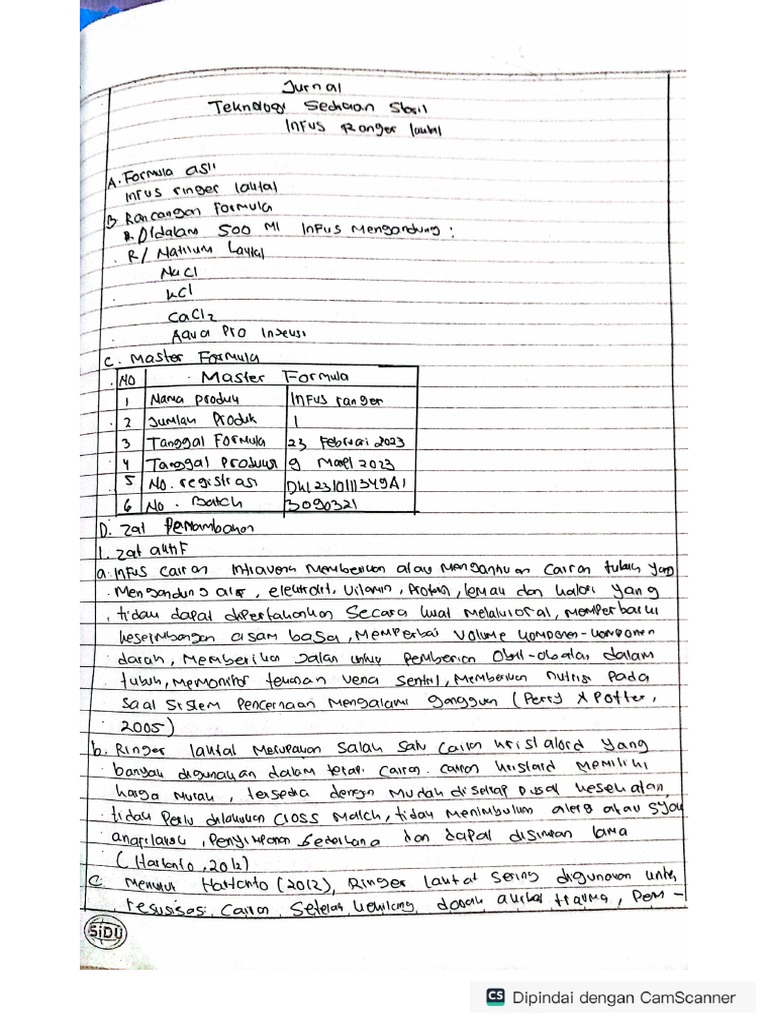 Jurnal
Teknologi Sediaan Steril
Infus Ranger laktat
A. Formula asli
Infus ringer laktat
B. Rancangan Formula
R. Didalam 500 Ml Infus Mengandung :
R/ Natrium Laktat
NaCl
KCl
CaCl2
Aqua Pro Injeksi
C. Master Formula
No Master Formula
1 Nama Produk Infus ranger
2 Jumlah Produk 1
3 Tanggal Formula 23 Februari 2023
4 Tanggal Produksi 9 Maret 2023
5 No. registrasi
6 No. Batch 3090321
D. Zat Penambahan
1. Zat aktif
a. Infus cairan Intravena Memberikan atau Menggantikan Cairan tubuh yang
Mengandung air, elektrolit, Vitamin, Protein, lemak dan kalori yang
tidak dapat dipertahankan Secara kuat Melaluioral, Memperbaiki
keseimbangan asam basa, Memperbaiki Volume komponen-komponen
darah, Memberikan Jalan untuk Pemberian Obat-obatan dalam
tubuh, Memonitor tekanan Vena Sentral, Memberikan Nutrisi Pada
Saat Sistem Pencernaan Mengalami gangguan (Perry & Potter,
2005)
b. Ringer laktat Merupakan Salah Satu Cairan kristaloid yang
banyak digunakan dalam terapi Cairan. Cairan kristaloid Memiliki
harga Murah, tersedia dengan Mudah di setiap Pusat kesehatan,
tidak Perlu dilakukan Cross Match, tidak Menimbulkan alergi atau Syok
anafilaksi, Penyimpanan Sederhana dan dapat disimpan lama
(Hartanto, 2012)
C. Menurut Hartanto (2012), Ringer laktat Sering digunakan untuk
resusitasi Cairan Setelah kehilangan darah akibat trauma, Pem-
SiDU
CS Dipindai dengan CamScanner